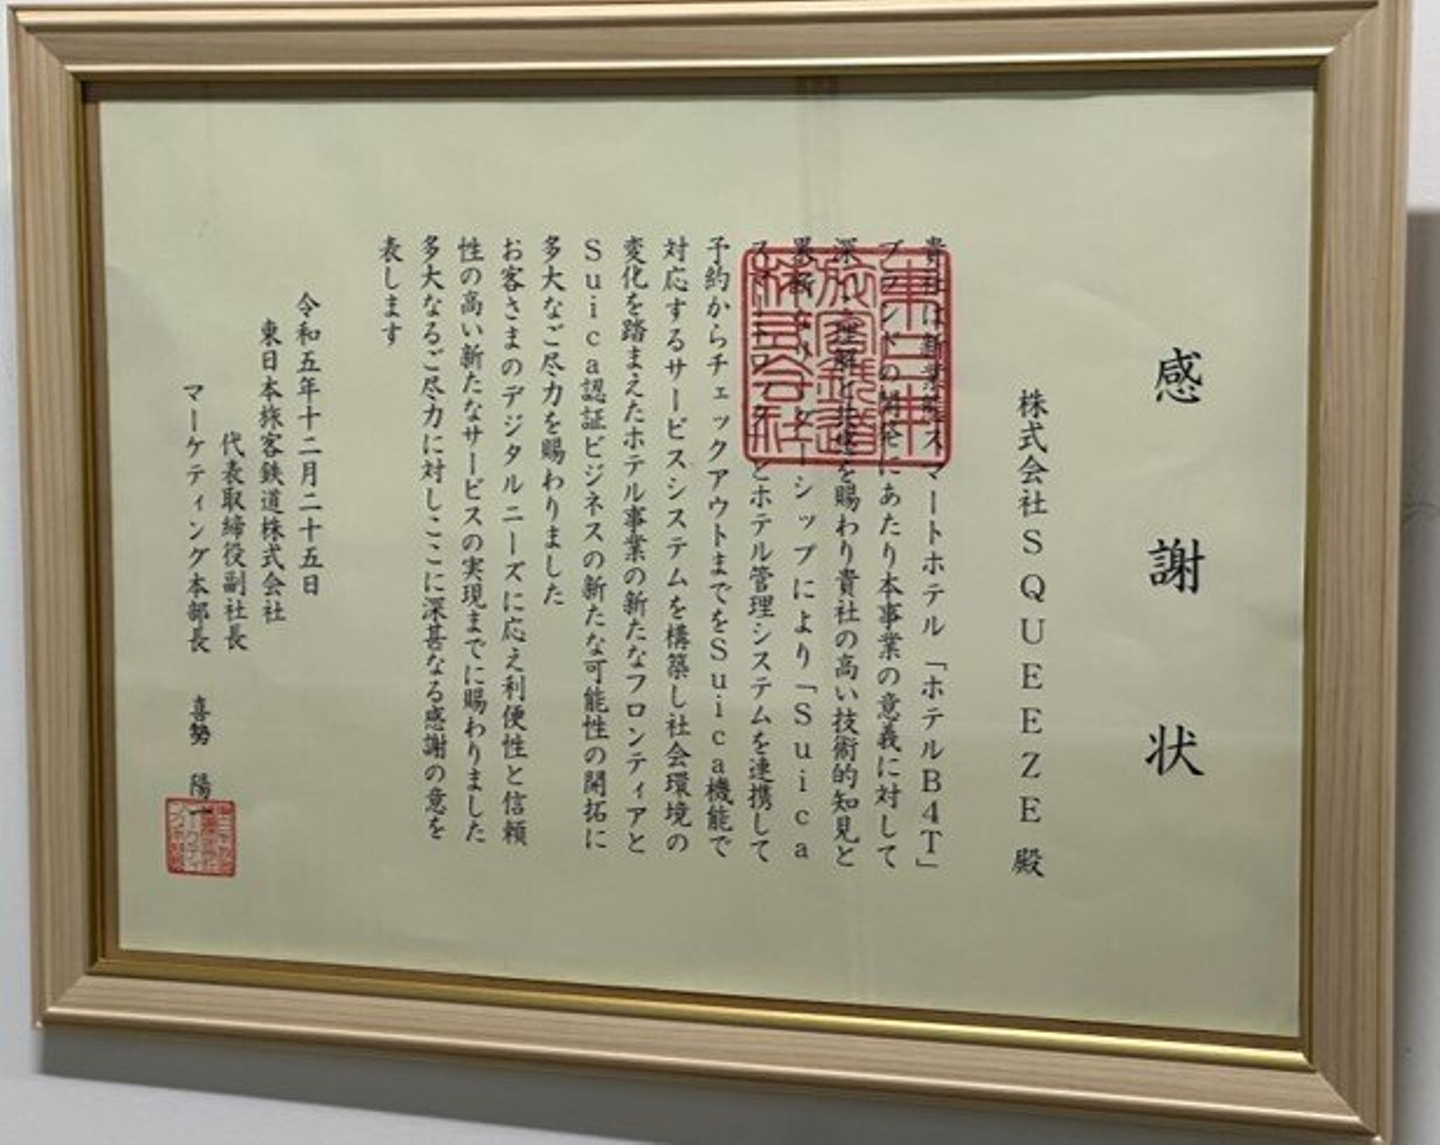 感謝状
株式会社SQUEEZE殿
貴社は新業態スマートホテル「ホテルB4T」
ブランドの開発にあたり本事業の意義に対して
深い理解と共感を賜わり貴社の高い技術的知見と
革新的リーダーシップにより「Suica
スマートロック」とホテル管理システムを連携して
予約からチェックアウトまでをSuica機能で
対応するサービスシステムを構築し社会環境の
変化を踏まえたホテル事業の新たなフロンティアと
Suica認証ビジネスの新たな可能性の開拓に
多大なご尽力を賜わりました
お客さまのデジタルニーズに応え利便性と信頼
性の高い新たなサービスの実現までに賜わりました
多大なるご尽力に対しここに深甚なる感謝の意を
表します
令和五年十二月二十五日
東日本旅客鉄道株式会社
代表取締役副社長
マーケティング本部長 喜勢 陽一
東日本
旅客鉄道
株式会社